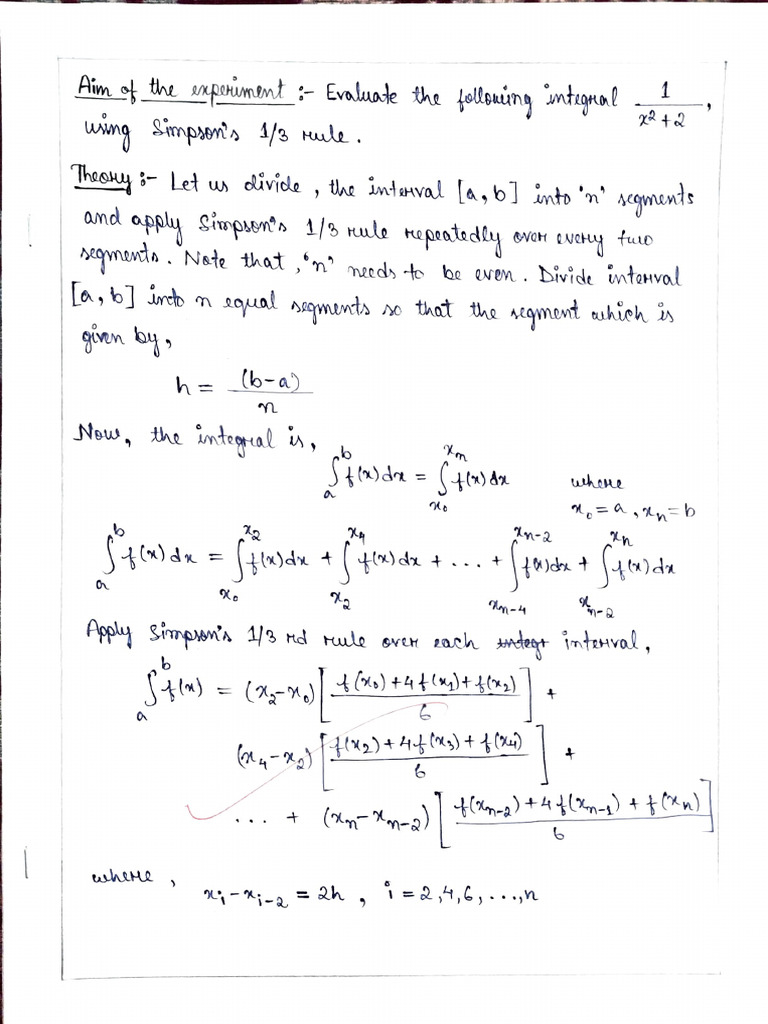 Aim of the experiment :- Evaluate the following integral 1/(x² + 2),
using Simpson's 1/3 rule.
Theory :- Let us divide, the interval [a, b] into 'n' segments
and apply Simpson's 1/3 rule repeatedly over every two
segments. Note that, 'n' needs to be even. Divide interval
[a, b] into n equal segments so that the segment which is
given by,
h = (b-a)/n
Now, the integral is,
∫_a^b f(x) dx = ∫_{x₀}^{xₙ} f(x) dx where
x₀ = a, xₙ = b
∫_a^b f(x) dx = ∫_{x₀}^{x₂} f(x) dx + ∫_{x₂}^{x₄} f(x) dx + ... + ∫_{xₙ₋₄}^{xₙ₋₂} f(x) dx + ∫_{xₙ₋₂}^{xₙ} f(x) dx
Apply Simpson's 1/3 rd rule over each integr interval,
∫_a^b f(x) = (x₂ - x₀) [ (f(x₀) + 4f(x₁) + f(x₂))/6 ] +
(x₄ - x₂) [ (f(x₂) + 4f(x₃) + f(x₄))/6 ] +
... + (xₙ - xₙ₋₂) [ (f(xₙ₋₂) + 4f(xₙ₋₁) + f(xₙ))/6 ]
where,
xᵢ - xᵢ₋₂ = 2h, i = 2, 4, 6, ..., n